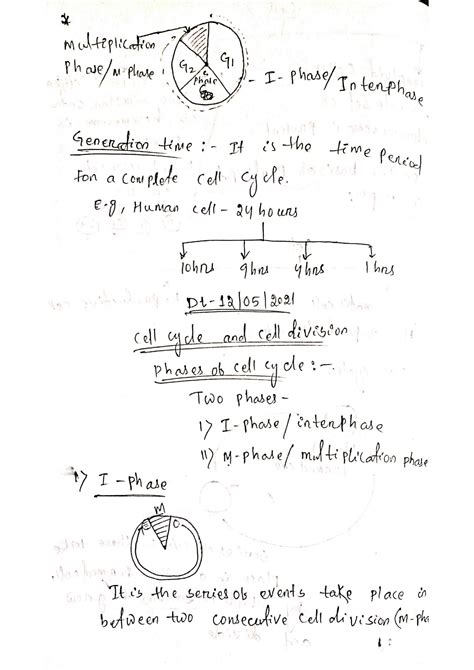 *
Multiplication
Phase/M-phase
G2
G1
S
Phase
- I-phase/Interphase
Generation time :- It is the time period
for a complete cell cycle.
E.g, Human cell - 24 hours
10hrs 9hrs 4hrs 1hrs
Dt-12/05/2021
Cell cycle and cell division
Phases of cell cycle :-
Two phases-
I) I-phase/interphase
II) M-phase/multiplication phase
I) I-phase
M
It is the series of events take place in
between two consecutive cell division (M-pha